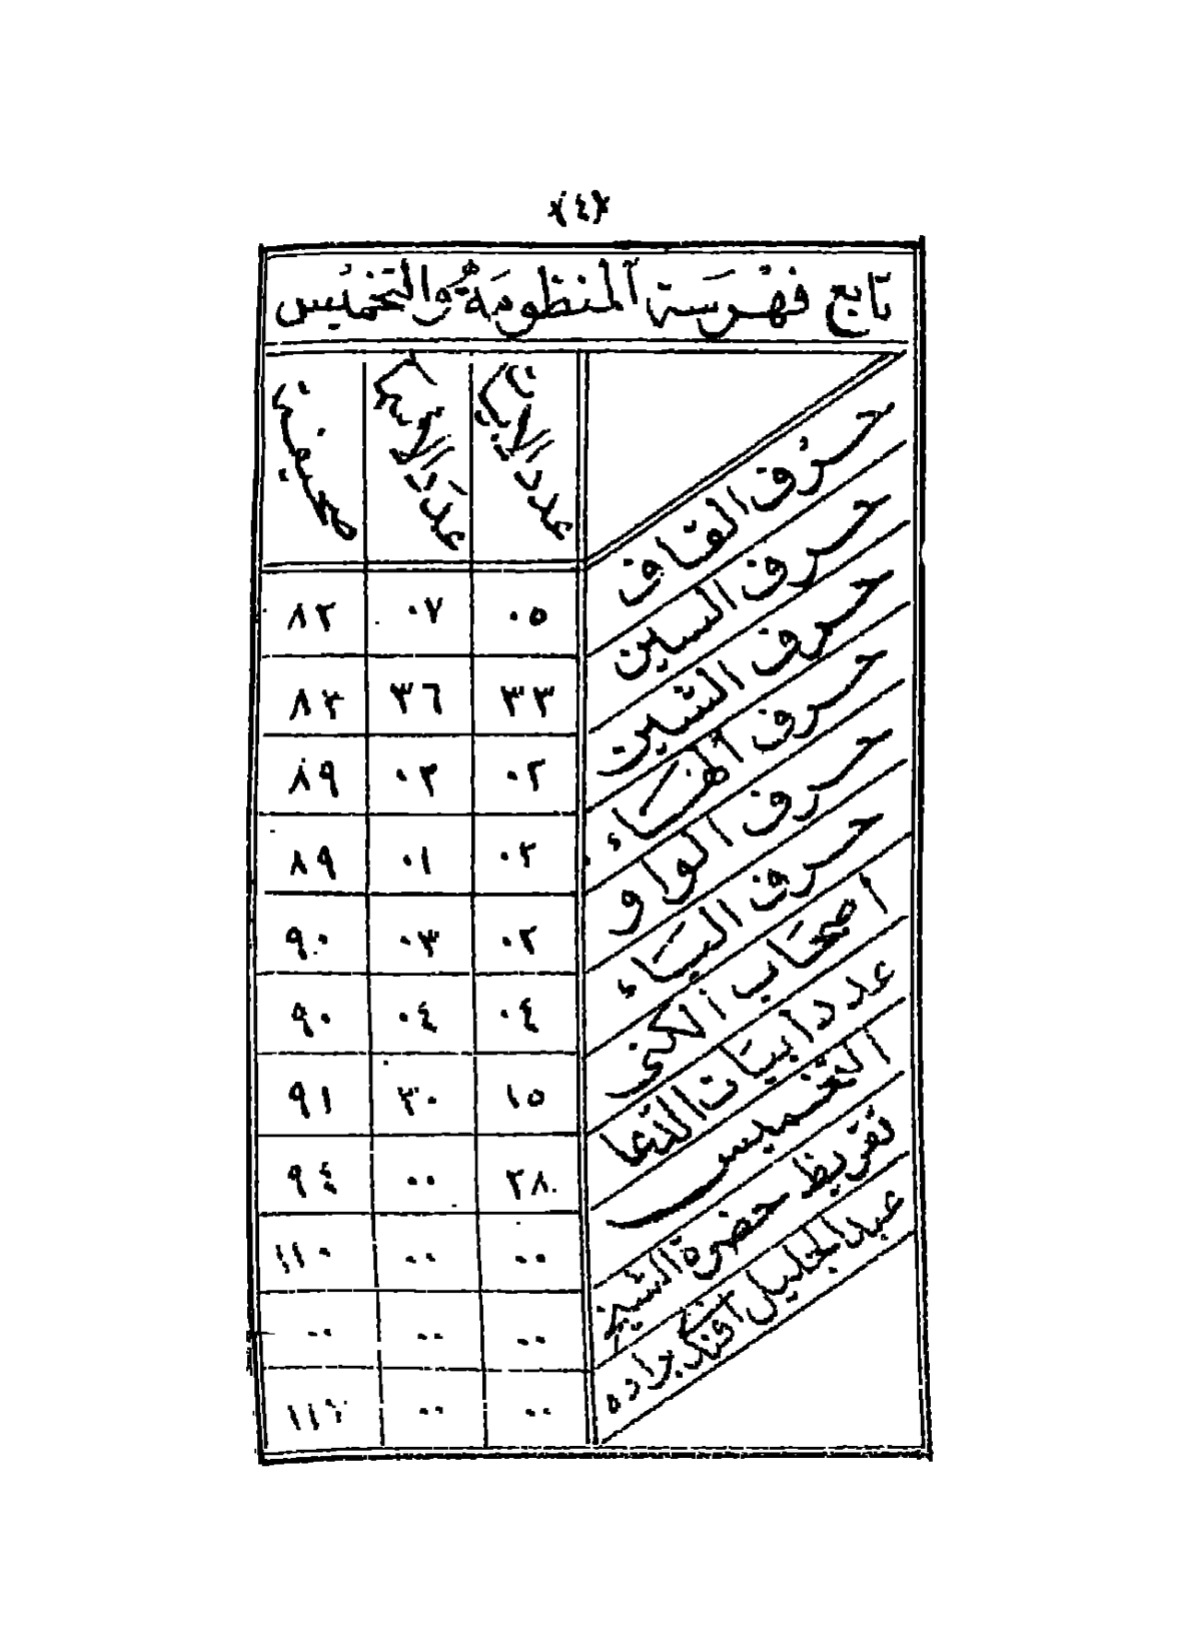 ﴿٤﴾
تابع فهرسة المنظومة والتخميس
عدد الابيات عدد الاسماء صحيفة
حرف القاف ٠٥ ٠٧ ٨٢
حرف السين ٣٣ ٣٦ ٨٣
حرف الشين ٠٢ ٠٣ ٨٩
حرف الهاء ٠٢ ٠١ ٨٩
حرف الواو ٠٢ ٠٣ ٩٠
حرف الياء ٠٤ ٠٤ ٩٠
اصحاب الكنى ١٥ ٣٠ ٩١
عدد ابيات الدعا ٢٨ ٠٠ ٩٤
التخميس ٠٠ ٠٠ ١١٠
تقريظ حضرة الشيخ ٠٠ ٠٠ ٠٠
عبد الجليل افندى براده ٠٠ ٠٠